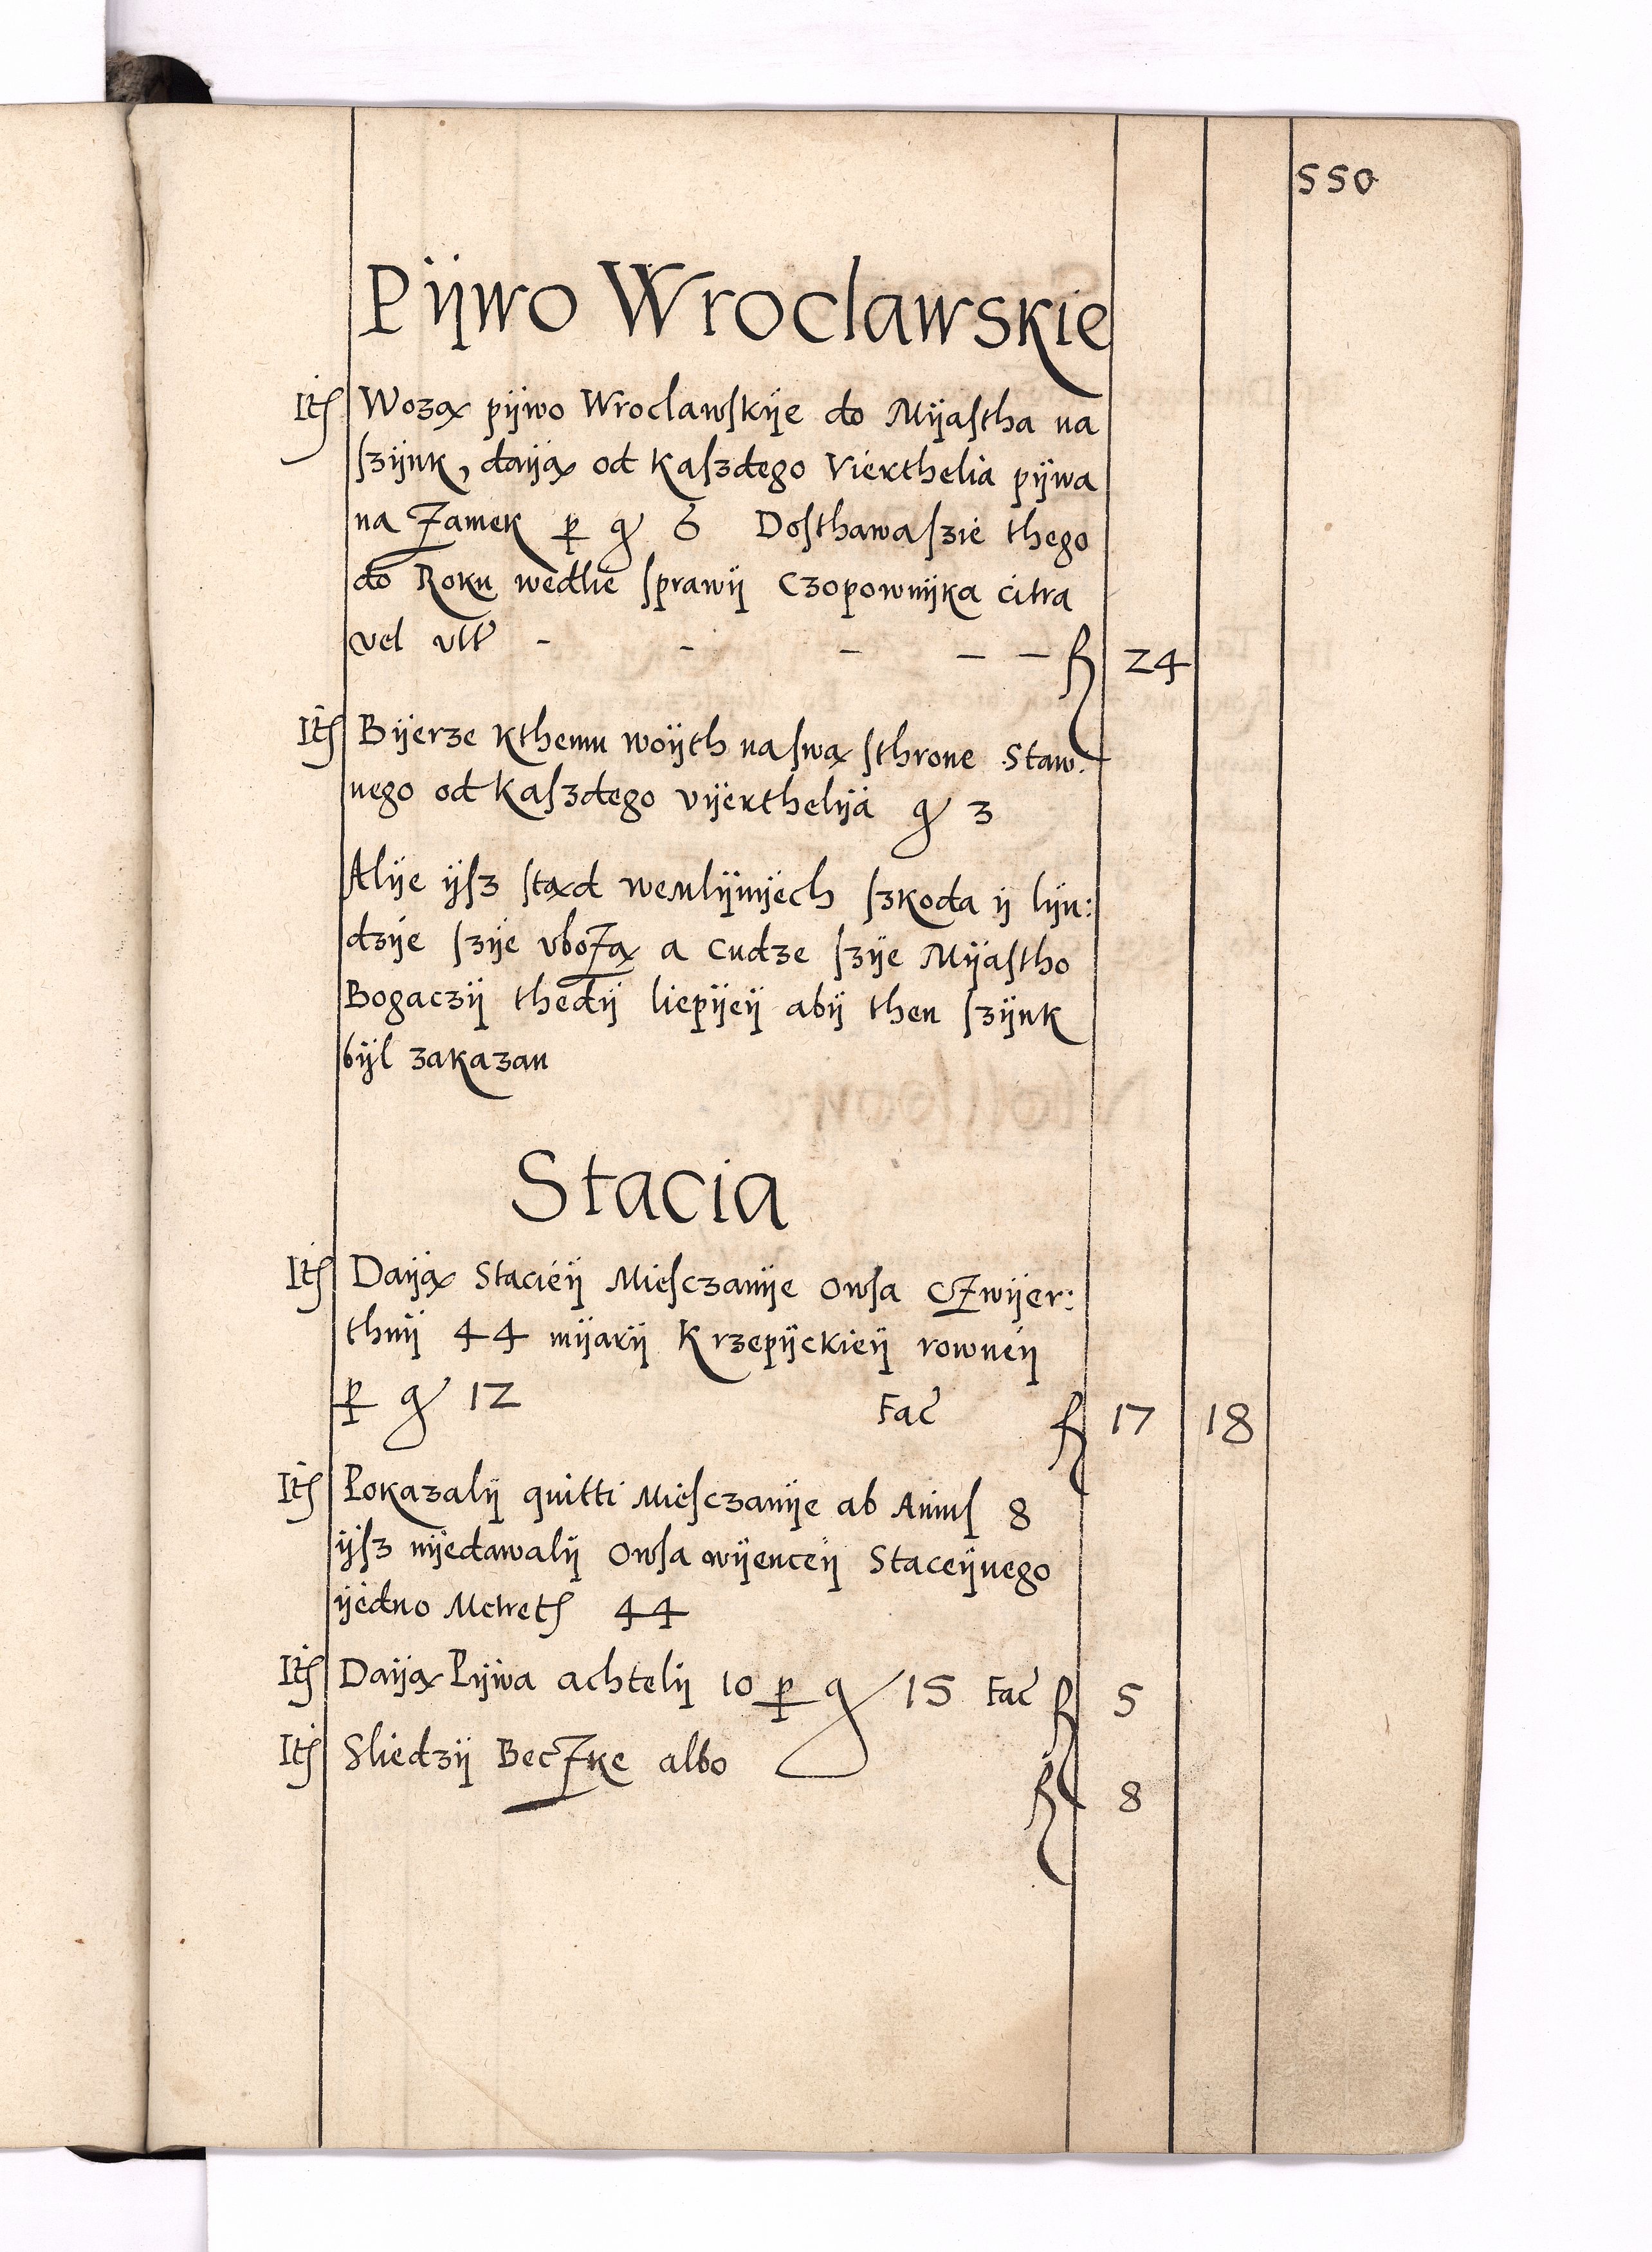 550
Pijwo Wroclawskie
Itſ Wozą pijwo Wroclawſkije do Mijaſtha na
ſzijnk, daiją od kaſzdego Vierthelia pijwa
na Zamek ꝑ gͬ 6 Doſthawaſzie thego
do Roku wedlie ſprawij Czopownijka citra
vel vltͬ - - - - - fl 24
Itſ Bijerze kthemu woijth naſwą ſthrone Staw:
nego od kaſzdego vijerthelija gͬ 3
Alije ijſz ſtąd wemlijnijech ſzkoda ij lijn:
dzije ſzije vbożą a cudze ſzije Mijaſtho
Bogaczij thedij liepijeij abij then ſzijnk
bijl zakazan
Stacia
Itſ Daiją Stacieij Mieſczanije owſa Czwijer:
thnij 44 mijarij Krzepijckieij rowneij
ꝑ gͬ 12 Fac̃ fl 17 18
Itſ Pokazalij quitti Mieſczanije ab Anniſ 8
ijſz nijedawalij owſa wijenceij Staceijnego
ijedno Metretſ 44
Itſ Daiją Pijwa achtelij 10 ꝑ gͬ 15 Fac̃ fl 5
Itſ Sliedzij Beczke albo fl 8